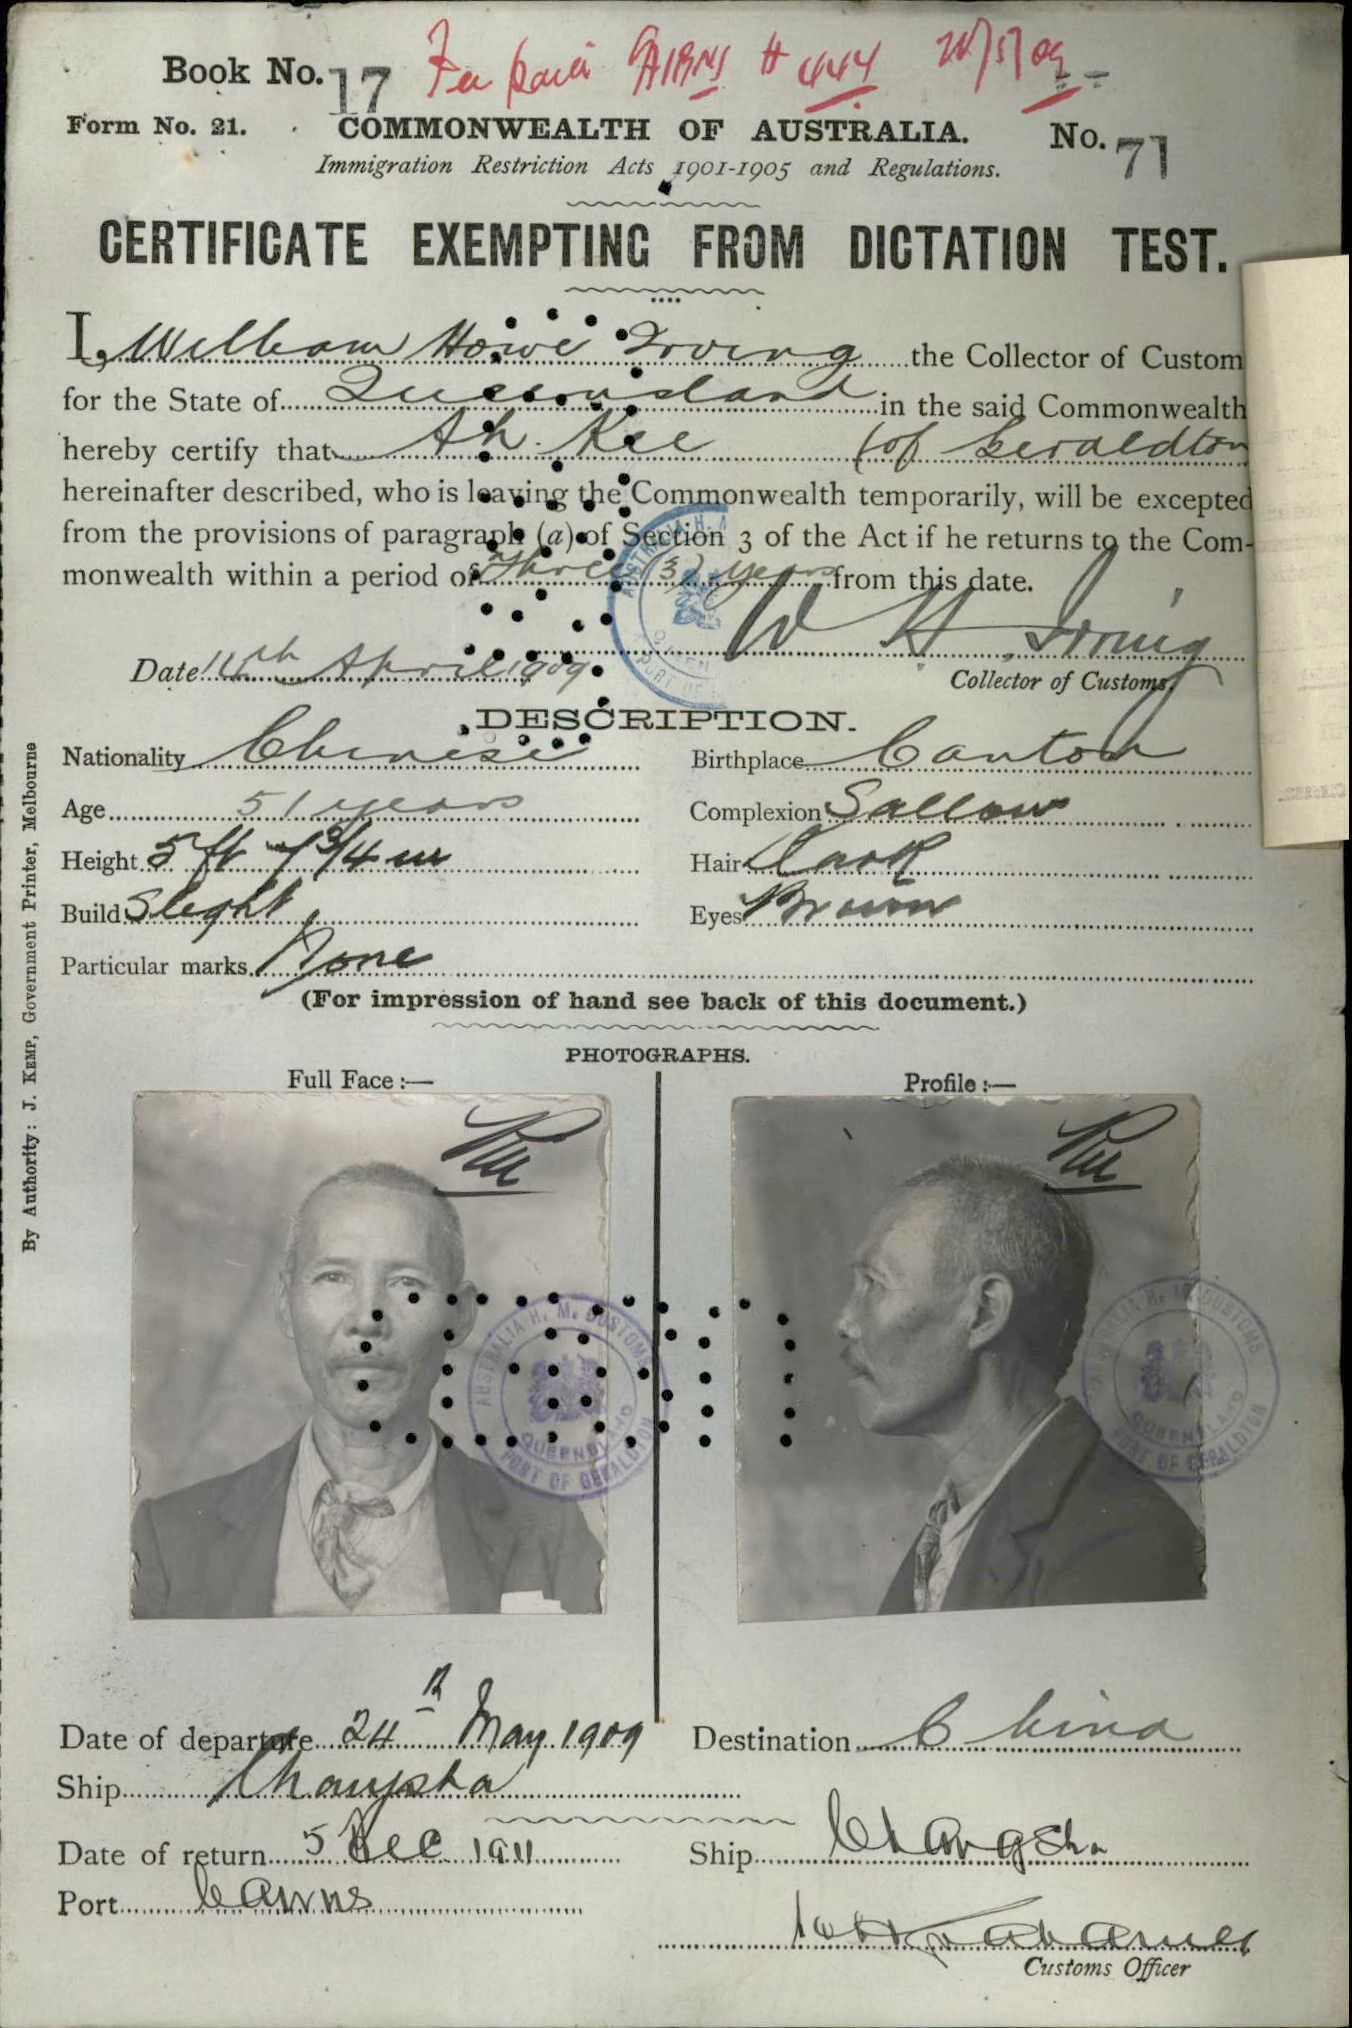 Book No. 17 Fee paid CAIRNS # 444 24/5/09
Form No. 21. COMMONWEALTH OF AUSTRALIA. No. 71
Immigration Restriction Acts 1901-1905 and Regulations.
CERTIFICATE EXEMPTING FROM DICTATION TEST.
I, William Howe Irving the Collector of Custom
for the State of Queensland in the said Commonwealth
hereby certify that Ah Kee (of Geraldton
hereinafter described, who is leaving the Commonwealth temporarily, will be excepted
from the provisions of paragraph (a) of Section 3 of the Act if he returns to the Com-
monwealth within a period of Three (3) years from this date.
W H Irving
Date April 1909 Collector of Customs.
DESCRIPTION.
Nationality Chinese Birthplace Canton
Age 51 years Complexion Sallow
Height 5 ft 7 3/4 in Hair Dark
Build Slight Eyes Brown
Particular marks None
(For impression of hand see back of this document.)
PHOTOGRAPHS.
Full Face:— Profile:—
AUSTRALIA H. M. CUSTOMS
QUEENSLAND
PORT OF GERALDTON
AUSTRALIA H. M. CUSTOMS
QUEENSLAND
PORT OF GERALDTON
Date of departure 24th May 1909 Destination China
Ship Changsha
Date of return 5 Dec 1911 Ship Changsha
Port Cairns
Customs Officer
By Authority: J. KEMP, Government Printer, Melbourne